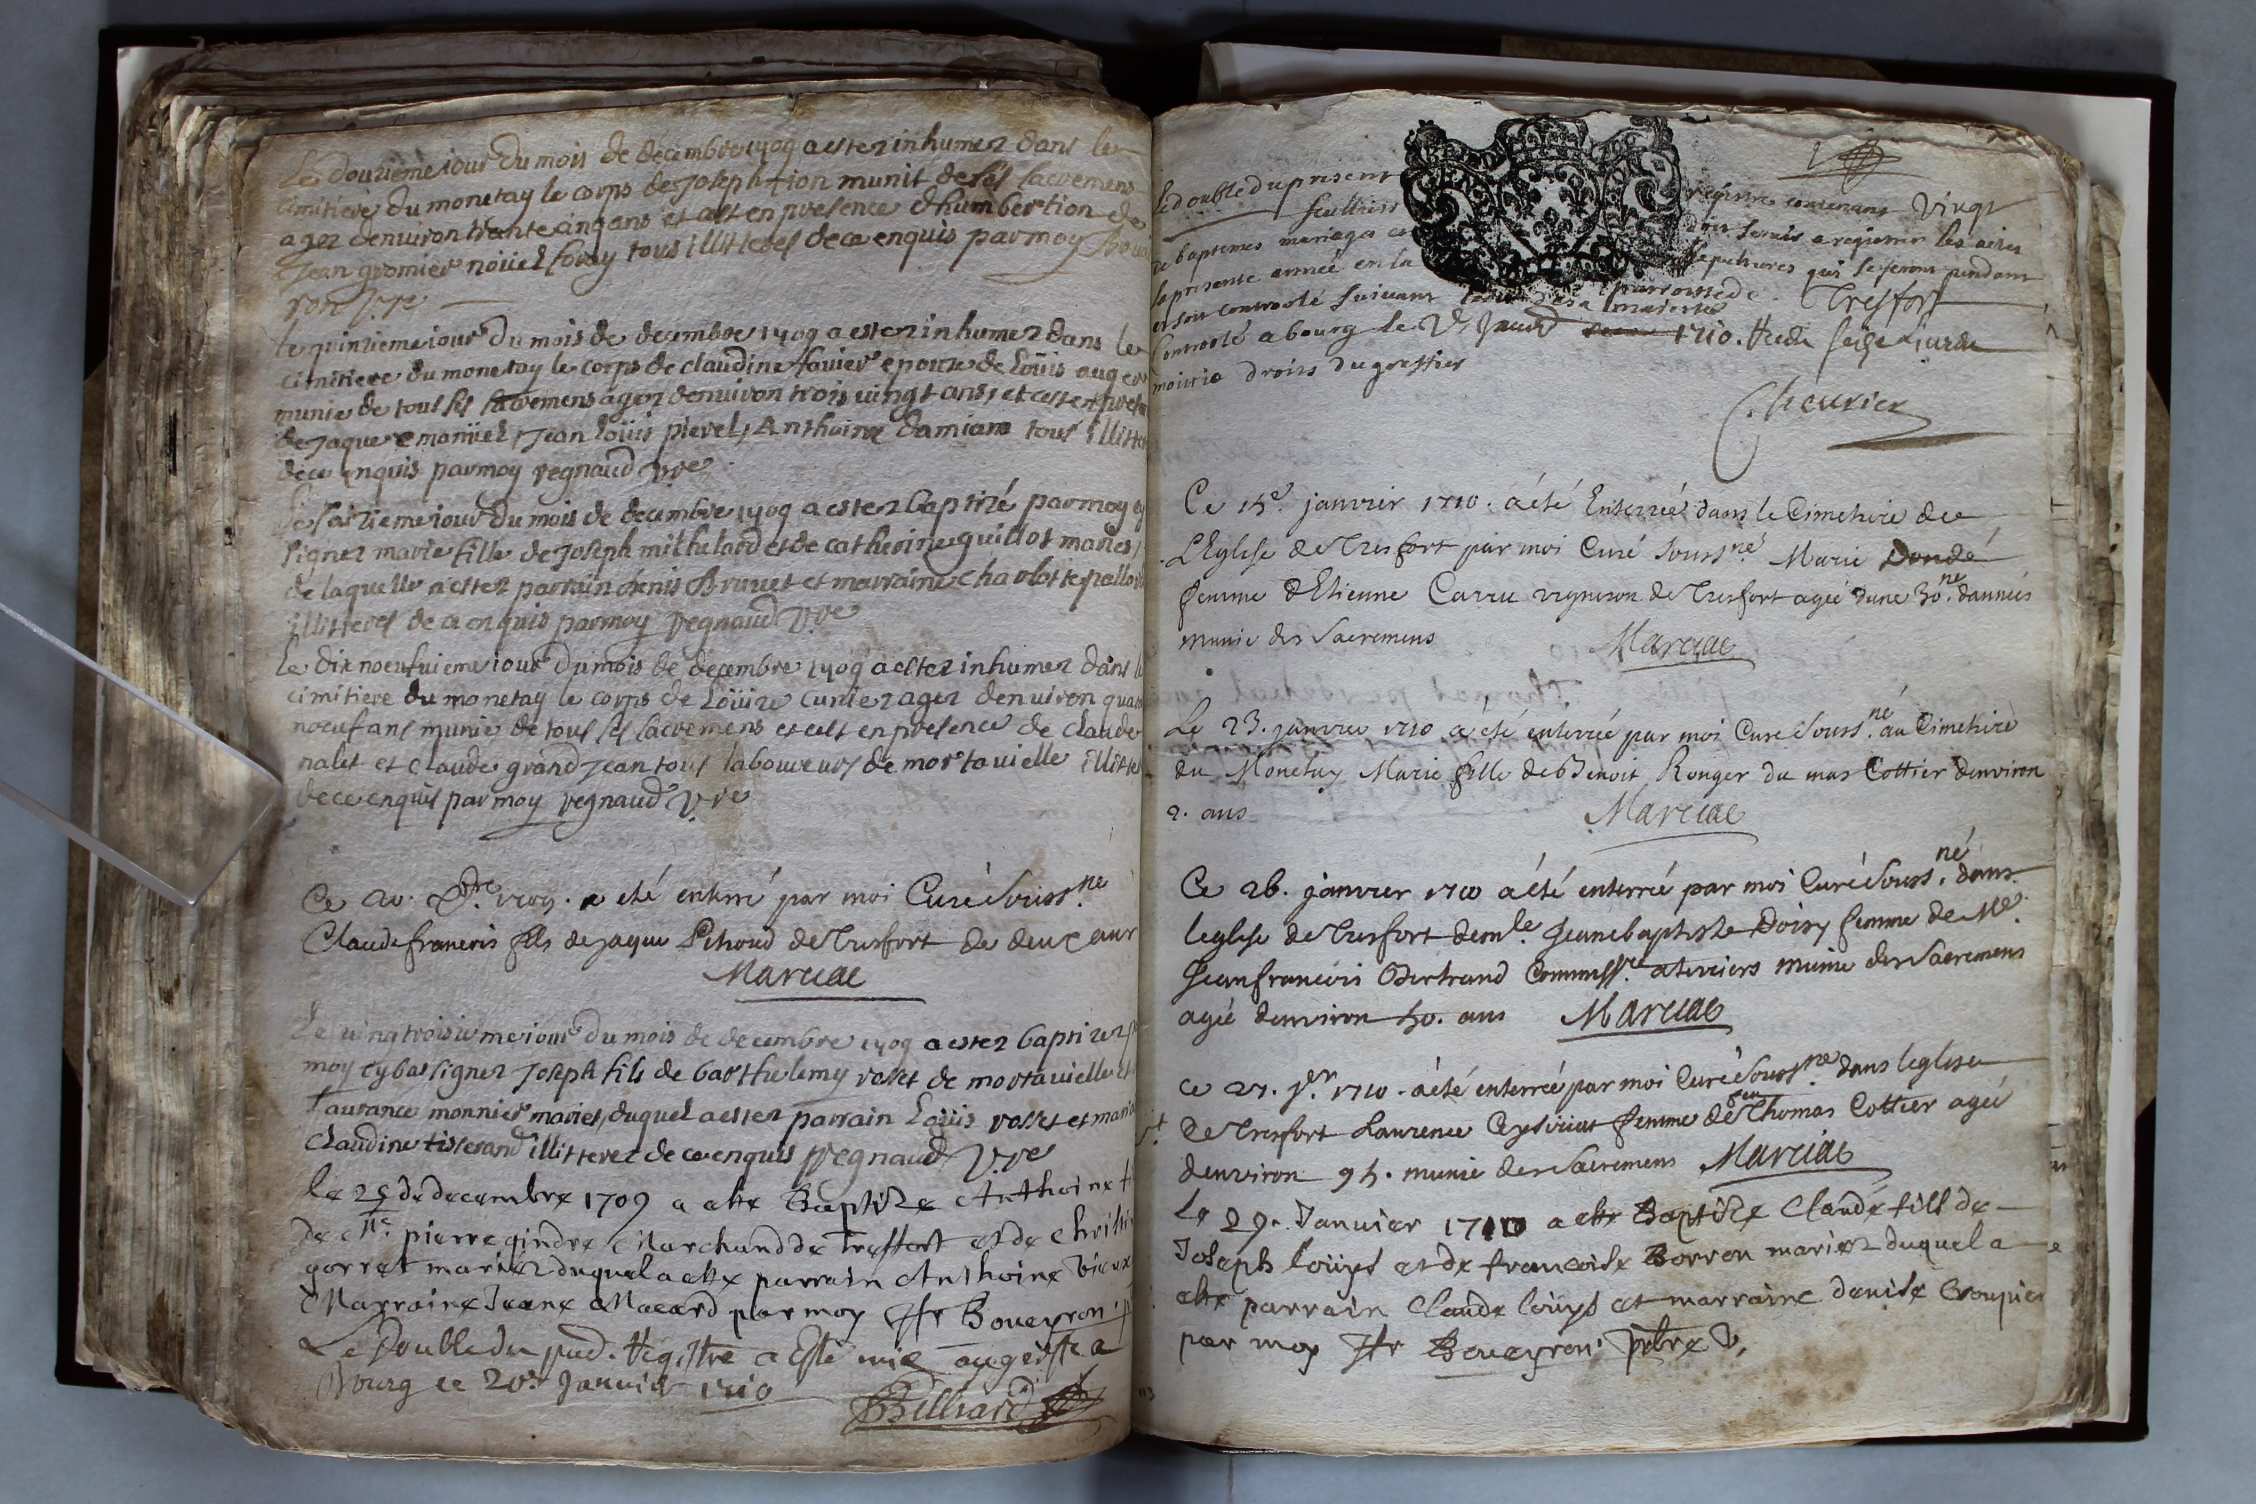 Le douzieme iour du mois de decembre 1709 a ester inhumez dans le
cimitiere du monetay le corps de Joseph tion munit de ses sacremens
agez denuiron trente cinq ans et cest en presence dhumbert tion de
Jean gromier noüel foray tous illitteres de ce enquis par moy Boue
ron v.re
le quinzieme iour du mois de decembre 1709 a ester inhumez dans le
cimitiere du monetay le corps de claudine fauier epouze de Loüis auger
munie de tous ses sacremens agez denuiron trois uingt ans, et cest en prese
de Jaque emanüel, Jean Loüis pierel, Anthoine damians tous illitte
de ce enquis par moy regnaud v.re
Le saizieme iour du mois de decembre 1709 a ester baptizé par moy cy
signez marie fille de Joseph michelard et de catherine guillot maries,
de laquelle a ester parrain denis Brunet et marraine charlotte pallo
illitteres de ce enquis par moy regnaud v.re
Le dix noeufuieme iour du mois de decembre 1709 a ester inhumez dans le
cimitiere du monetay le corps de Loüize curtez agez denuiron quara
noeuf ans munie de tous ses sacremens et cest en presence de claude
nalet et claude grand Jean tous laboureurs de mortauielle illitte
de ce enquis par moy regnaud v.re
Ce 20. Xbre. 1709. a eté enterré par moi Curé Souss.né
Claude francois fils de Jaque Pithoud de Tresfort de deux ans
Marciac
Le uingtroisieme iour du mois de decembre 1709 a ester baptizez p
moy cy bas signez Joseph fils de barthelemy rosset de mortauielle et
Laurance monnier maries, duquel a ester parrain Loüis rosset et mara
Claudine tisserand illitterez de ce enquis regnaud v.re
le 25 de decembre 1709 a este Baptize Anthoine f
de Me. pierre gindre Marchand de treffort et de christi
gorret mariéz duquel a este parrain Anthoine vieux
Marraine Jeane Macard par moy Boueyron p
Le double du pnt. Registre a Esté mis au greffe a
Bourg ce 20e Januier 1710
Billiard
Le double du present registre contenant vingt
feuillets
de baptemes mariages et sepultures qui se feront pendant
la presente année en la parroisse de Tresfort
et soit controolé suiuant
Controolé a bourg le 1710. Receu seize liures
moitié droits du greffier
Cheurier
Ce 15e. janvier 1710. a été Enterrée dans le Cimetiere de
L'Eglise de Tresfort par moi Curé souss.né Marie Dondé
femme d'Etienne Carru vigneron de Tresfort agée d'une 30.ne d'années
munie des Sacremens Marciac
Le 23. janvier 1710 a été enterrée par moi Curé Souss.né au Cimetiere
du Monetay Marie fille de Benoit Ronger du mas Cottier denviron
2. ans Marciac
Ce 26. janvier 1710 a été enterrée par moi Curé Souss.né dans
leglise de Tresfort dem.le Jeanebaptiste Doisy femme de Me.
Jeanfrancois Bertrand Commiss.re a terriers munie des Sacremens
agée denviron 50. ans Marciac
Ce 27. j.er 1710. a été enterrée par moi Curé Souss.né dans leglise
de Tresfort Laurence Ceyseriat femme de feu Thomas Cottier agée
denviron 95. munie des Sacremens Marciac
Le 29. Januier 1710 a este Baptize Claude fils de
Joseph loüys et de francoise Borron mariez duquel a
este parrain Claude loüys et marraine denise Croupier
par moy Boueyron pbre v,